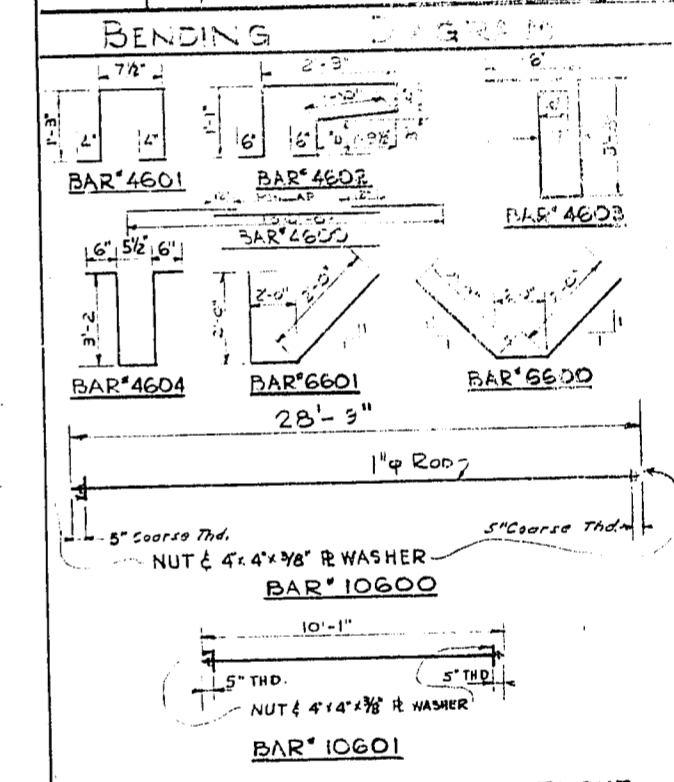 BENDING DIAGRAM
7½" 2'-3" 6"
1'-3" 4" 4" 1'-1" 6" 6" 4" 9½" 3"
BAR#4601 BAR#4602 BAR#4603
BAR#4600
6" 5½" 6" 2'-0" 2'-0" 2'-0"
3'-2 2'-0"
BAR#4604 BAR#6601 BAR#6600
28'-3"
1"φ ROD
5" Coarse Thd. 5" Coarse Thd.
NUT & 4"x4"x3/8" ℞ WASHER
BAR#10600
10'-1"
5" THD. 5" THD
NUT & 4"x4"x3/8" ℞ WASHER
BAR#10601